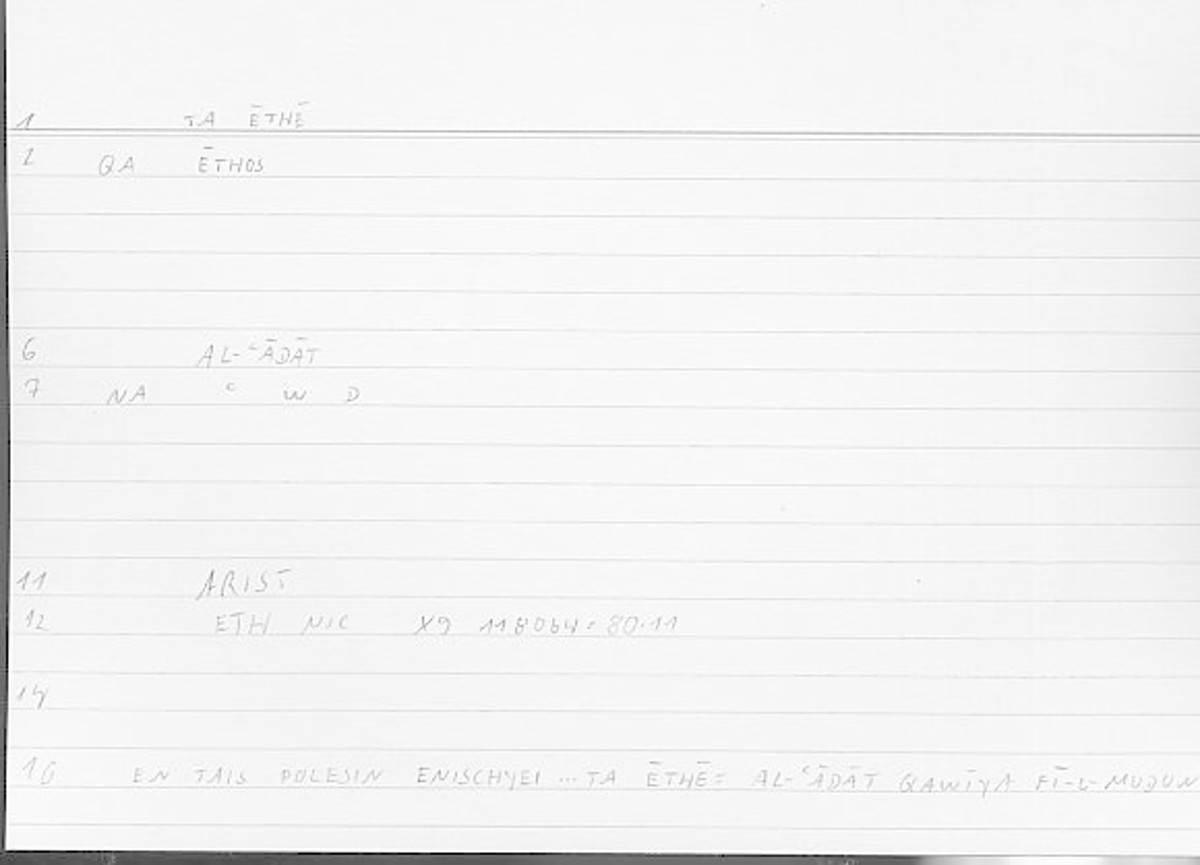 1 TA ĒTHĒ
2 QA ĒTHOS
6 AL-ʿĀDĀT
7 NA ʿ W D
11 ARIST
12 ETH NIC X9 1180b4. 80.11
14
16 EN TAIS POLESIN ENISCHYEI ... TA ĒTHĒ = AL-ʿĀDĀT QAWĪYA FĪ-L-MUDUN